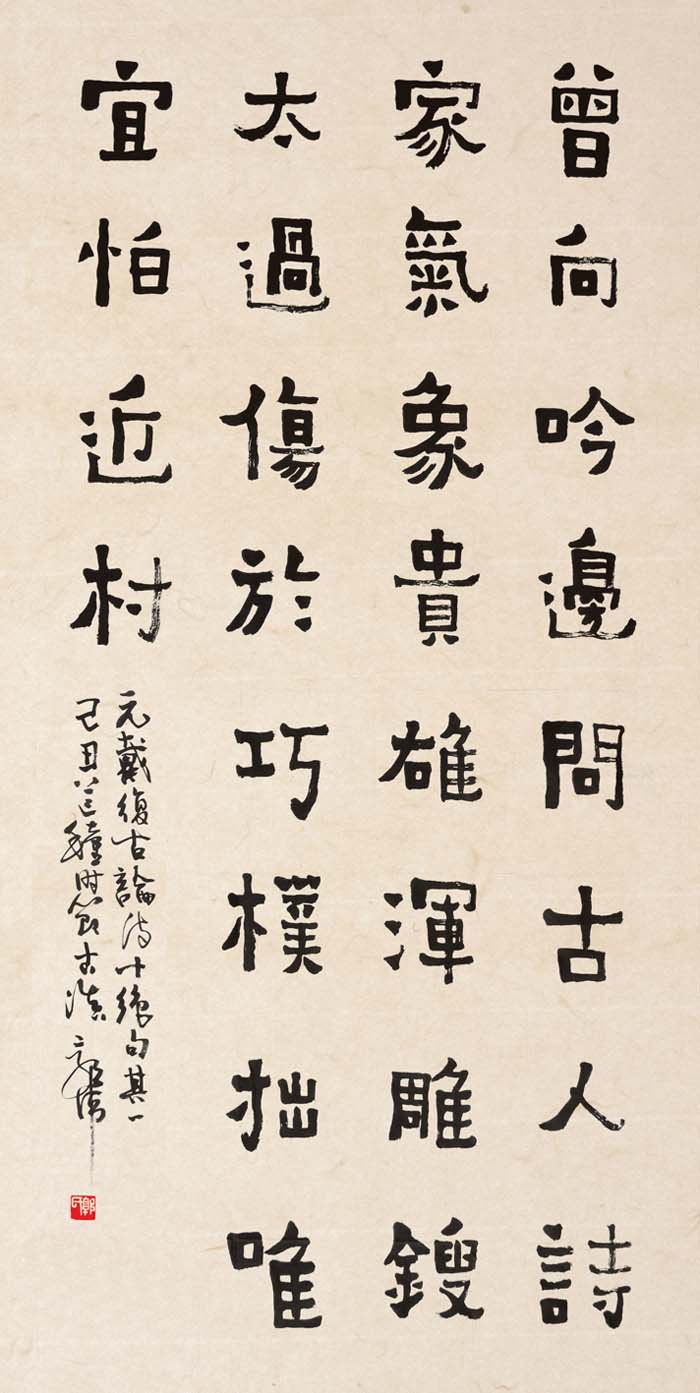 曾向吟邊問古人詩
家氣象貴雄渾雕鎪
太過傷於巧樸拙唯
宜怕近村
元戴復古論詩十絕句其一
己丑芒種時節古滇
郭氏